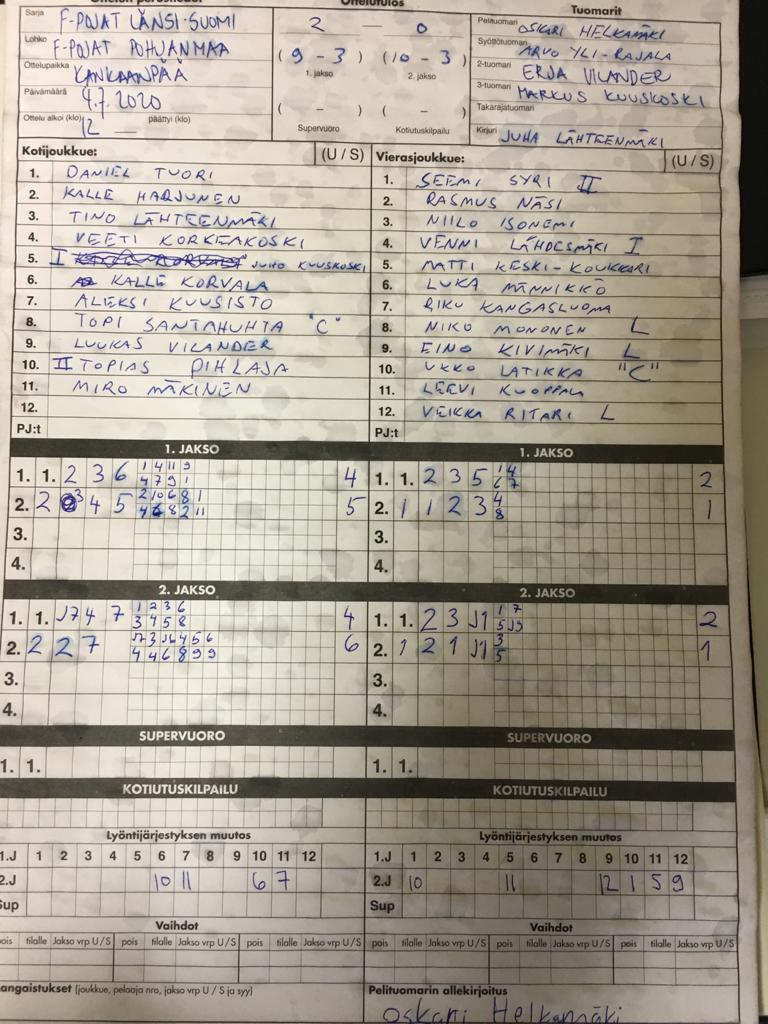 Ottelutulos
Tuomarit
Sarja F-POJAT LÄNSI-SUOMI
2 — 0
Pelituomari OSKARI HELKAMÄKI
Lohko F-POJAT POHJANMAA
(9 - 3) (10 - 3)
1. jakso 2. jakso
Syöttötuomari ARVO YLI-RAJALA
Ottelupaikka KANKAANPÄÄ
2-tuomari ERJA VILANDER
Päivämäärä 4.7.2020
( - ) ( - )
3-tuomari MARKUS KUUSKOSKI
Takarajatuomari
Ottelu alkoi (klo) 12 päättyi (klo)
Supervuoro Kotiutuskilpailu
Kirjuri JUHA LÄHTEENMÄKI
Kotijoukkue: (U / S)
1. DANIEL TUORI
2. KALLE HARJUNEN
3. TINO LÄHTEENMÄKI
4. VEETI KORKEAKOSKI
5. I JUHO KUUSKOSKI
6. KALLE KORVALA
7. ALEKSI KUUSISTO
8. TOPI SANTAHUHTA "C"
9. LUUKAS VILANDER
10. II TOPIAS PIHLAJA
11. MIRO MÄKINEN
12.
PJ:t
Vierasjoukkue: (U / S)
1. SEEMI SYRI II
2. RASMUS NÄSI
3. NIILO ISONEMI
4. VENNI LÄHDESMÄKI I
5. MATTI KESKI-KOUKKARI
6. LUKA MÄNNIKKÖ
7. RIKU KANGASLUOMA
8. NIKO MONONEN L
9. EINO KIVIMÄKI L
10. UKKO LATIKKA "C"
11. LEEVI KUOPPALA
12. VEIKKA RITARI L
PJ:t
1. JAKSO
1. 1. 2 3 6 4
2. 2 3 4 5 5
3.
4.
1. JAKSO
1. 1. 2 3 5 2
2. 1 1 2 3 1
3.
4.
2. JAKSO
1. 1. J7 4 7 4
2. 2 2 7 6
3.
4.
2. JAKSO
1. 1. 2 3 J1 2
2. 1 2 1 J1 1
3.
4.
SUPERVUORO
1. 1.
SUPERVUORO
1. 1.
KOTIUTUSKILPAILU
KOTIUTUSKILPAILU
Lyöntijärjestyksen muutos
1.J 1 2 3 4 5 6 7 8 9 10 11 12
2.J 10 11 6 7
Sup
Lyöntijärjestyksen muutos
1.J 1 2 3 4 5 6 7 8 9 10 11 12
2.J 10 11 12 1 5 9
Sup
Vaihdot
pois tilalle Jakso vrp U / S pois tilalle Jakso vrp U / S
Vaihdot
pois tilalle Jakso vrp U / S pois tilalle Jakso vrp U / S
angaistukset (joukkue, pelaaja nro, jakso vrp U / S ja syy)
Pelituomarin allekirjoitus
Oskari Helkamäki